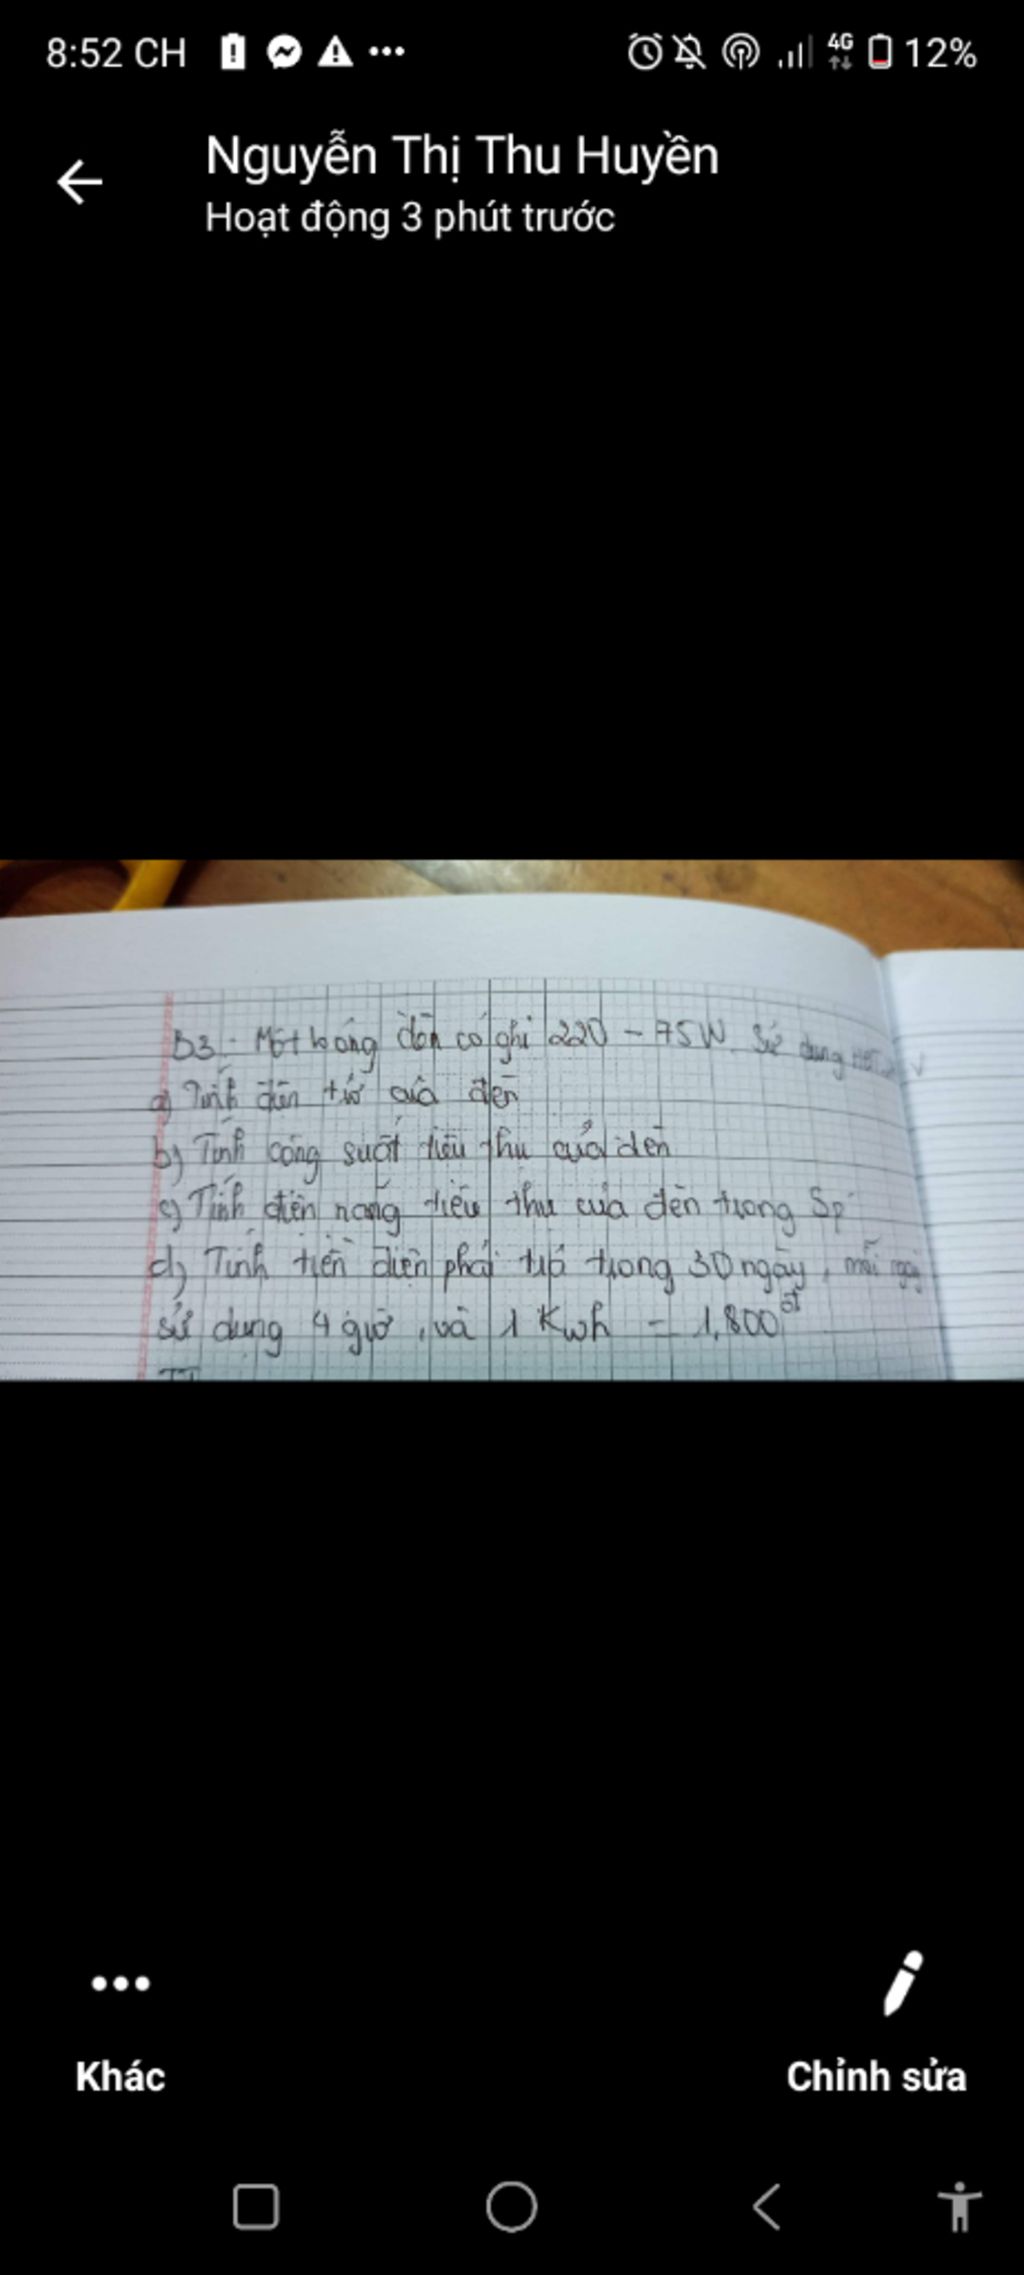 8:52 CH
4G
12%
Nguyễn Thị Thu Huyền
Hoạt động 3 phút trước
B3. Một bóng đèn có ghi 220 - 75W. Sử dụng V
a) Tính điện trở của đèn
b) Tính công suất tiêu thụ của đèn
c) Tính điện năng tiêu thụ của đèn trong 5p
d) Tính tiền điện phải trả trong 30 ngày, mỗi ngày
sử dụng 4 giờ, và 1 Kwh = 1,800đ
Khác
Chỉnh sửa